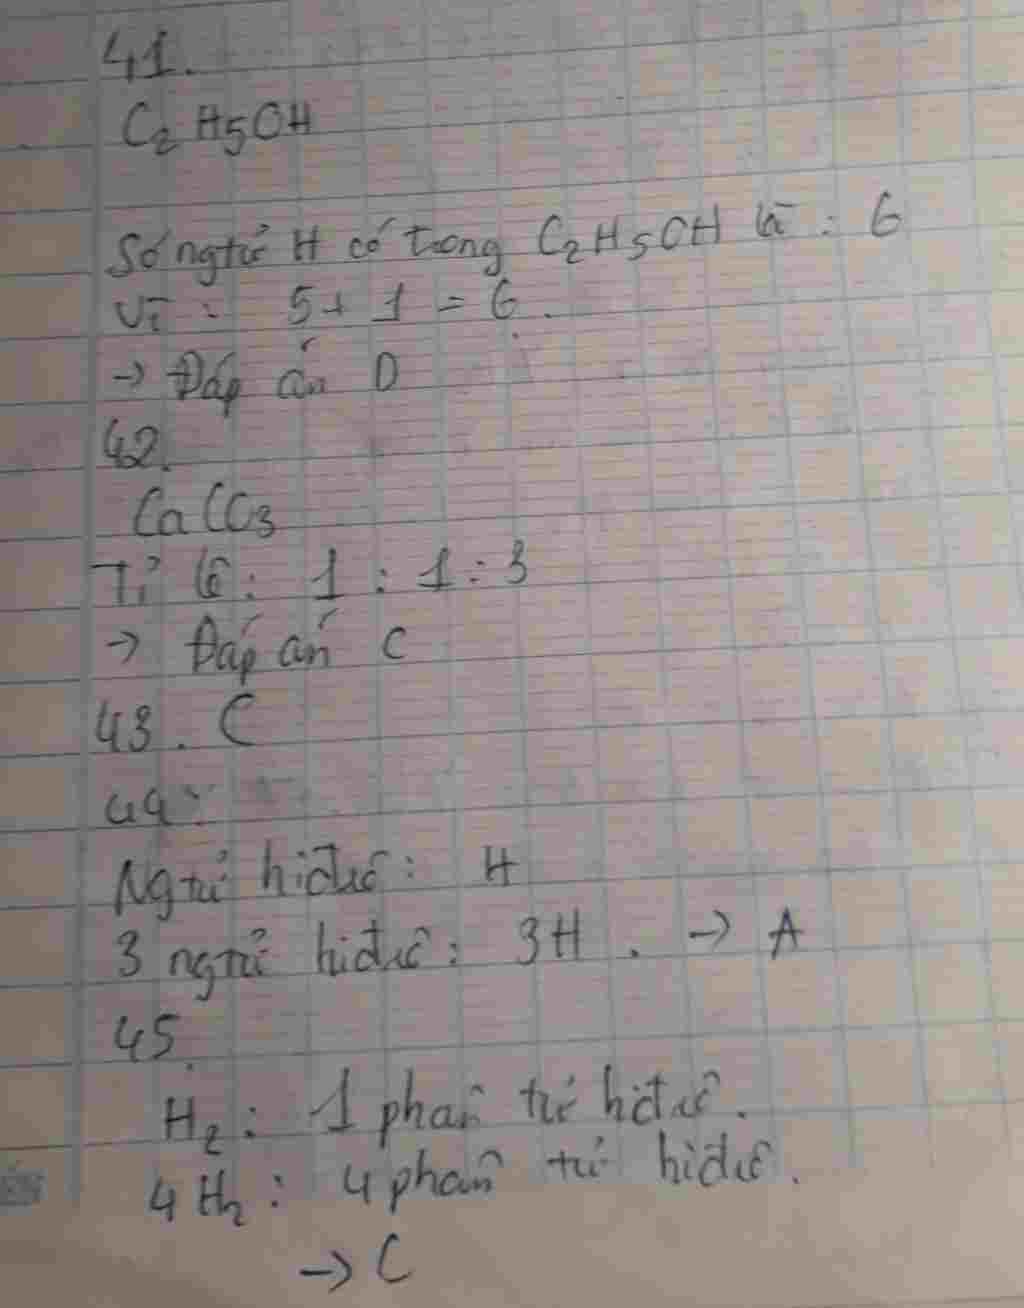 41.
C₂H₅OH
Số ngtử H có trong C₂H₅OH là : 6
Vì : 5 + 1 = 6.
→ Đáp án D
42.
CaCO₃
Tỉ lệ : 1 : 1 : 3
→ Đáp án C
43. C
44:
Ngtử hiđrô : H
3 ngtử hiđrô : 3H . → A
45.
H₂ : 1 phân tử hiđrô.
4H₂ : 4 phân tử hiđrô.
→ C